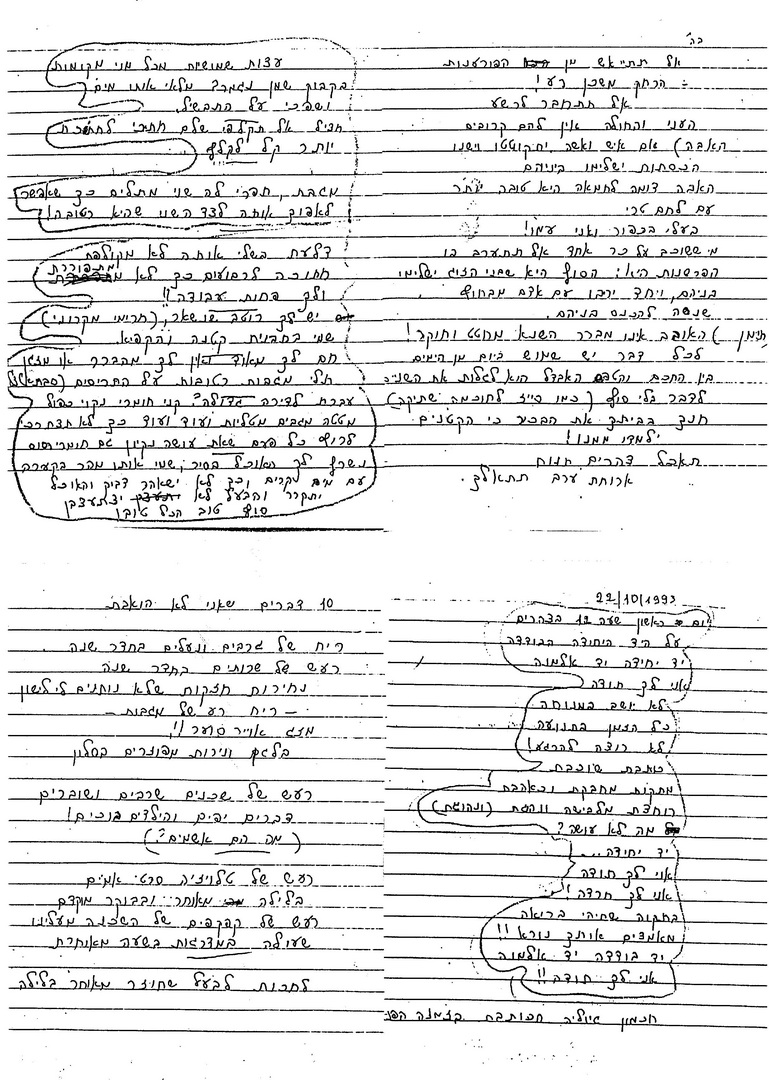 בה'
אל תתייאש מן הפורענות
הרחק משכן רע!
אל תתחבר לרשע
העני והחולה אין להם קרובים
האהבה) אם איש ואשה יתקוטטו וישנו
הכסתות ישלימו ביניהם
האהבה דומה לחמאה היא טובה יותר
עם לחם טרי
בעלי בכפור ואני עמו!
מי ששוכב על כר אחד אל תתערב בו
הפרשנות היא: הסוף היא ששני הזוג ישלימו
ביניהם, ויחד יריבו עם אדם מבחוץ
שנסה להכנס ביניהם.
האוהב אינו מברר השנא מחטט וחוקר!
לכל דבר יש שמוש כיום מן הימים
בין החכם והטפש האבדל הוא לגלות את השני
לדבר בלי סוף (כמו סייג לחוכמה שתיקה)
חנך בביתך את הבכור כי הקטנים
ילמדו ממנו!
תאכל צהרים חנוק
ארוחת ערב תתאלק.
עצות שמושיות מכל מני מקומות
בקבוק שמן נגמר? מלאי אותו מים
ושפכי על התבשיל.
חציל אל תקלפי שלם חתכי לחתיכות
יותר קל לקלף.
מגבת, תפרי לה שני מתלים כך שאפשר
לאפוך אותה לצד השני שהיא רטובה!
דלעת בשלי אותה לא מקולפת
חתוכה לרבועים כך לא מתפוררת
ולך פחות עבודה!!
יש לך רוטב שנשאר, (חרימי מקרוני)
שמי בתבנית קטנה והקפיא.
חם לך מאוד ואין לך מאוורר או מזגן
תלי מגבות רטובות על התריסים
עברת לדירה גדולה? קני חומרי נקוי כפול
מטטה מגבים מטליות ועוד ועוד כך לא תצטרכי
לרוץ כל פעם שאת עושה נקיון עם חומרי יסוס
נשרף לך האוכל בסיר, שמי אותו מהר בקערה
עם מים קרים וכך לא ישאר דביק והאוכל
יתקרר והבעל לא יצתעצבן
סוף טוב הכל טוב!
22/10/1993
יום ראשון שעה 12 בצהרים
על היד היחידה הבודדה
יד יחידה יד אלמנה
אני לך תודה
לא יושב במנוחה
כל הזמן בתנועה
לא רוצה להרגע!
כותבת שוכבת
מתקנת מחבקת וכואבת
רוחצת מלבישה ונהגת (ונהוגת)
מה לא עושה?
יד יחידה...
אני לך תודה
אני לך חרדה!
בתקוה שתיהי בריאה
מאמצים אותך נורא!!
יד בודדה יד אלמנה
אני לך תודה!!
חכמון ג'וליה הכותבת בזמנה הפנוי
10 דברים שאני לא אוהבת
ריח של גרבים ונעלים בחדר שנה
רעש של שרותים בחדר שנה
נחירות חזקות שלא נותנים לי לישון
- ריח רע של מגבות -
מזג אוויר סוער!!,
בלגן וניירות מפוזרים בסלון
רעש של שכנים שרבים ושוברים
דברים יפים והילדים בוכים!
(מה הם אשמים?)
רעש של טלויזיה סרטי אימים
בלילה מאוחר ובבוקר מוקדם
רעש של קפקפים של השכנה מעלינו
שעולה במדרגות בשעה מאוחרת
לחכות לבעל שחוזר מאוחר בלילה